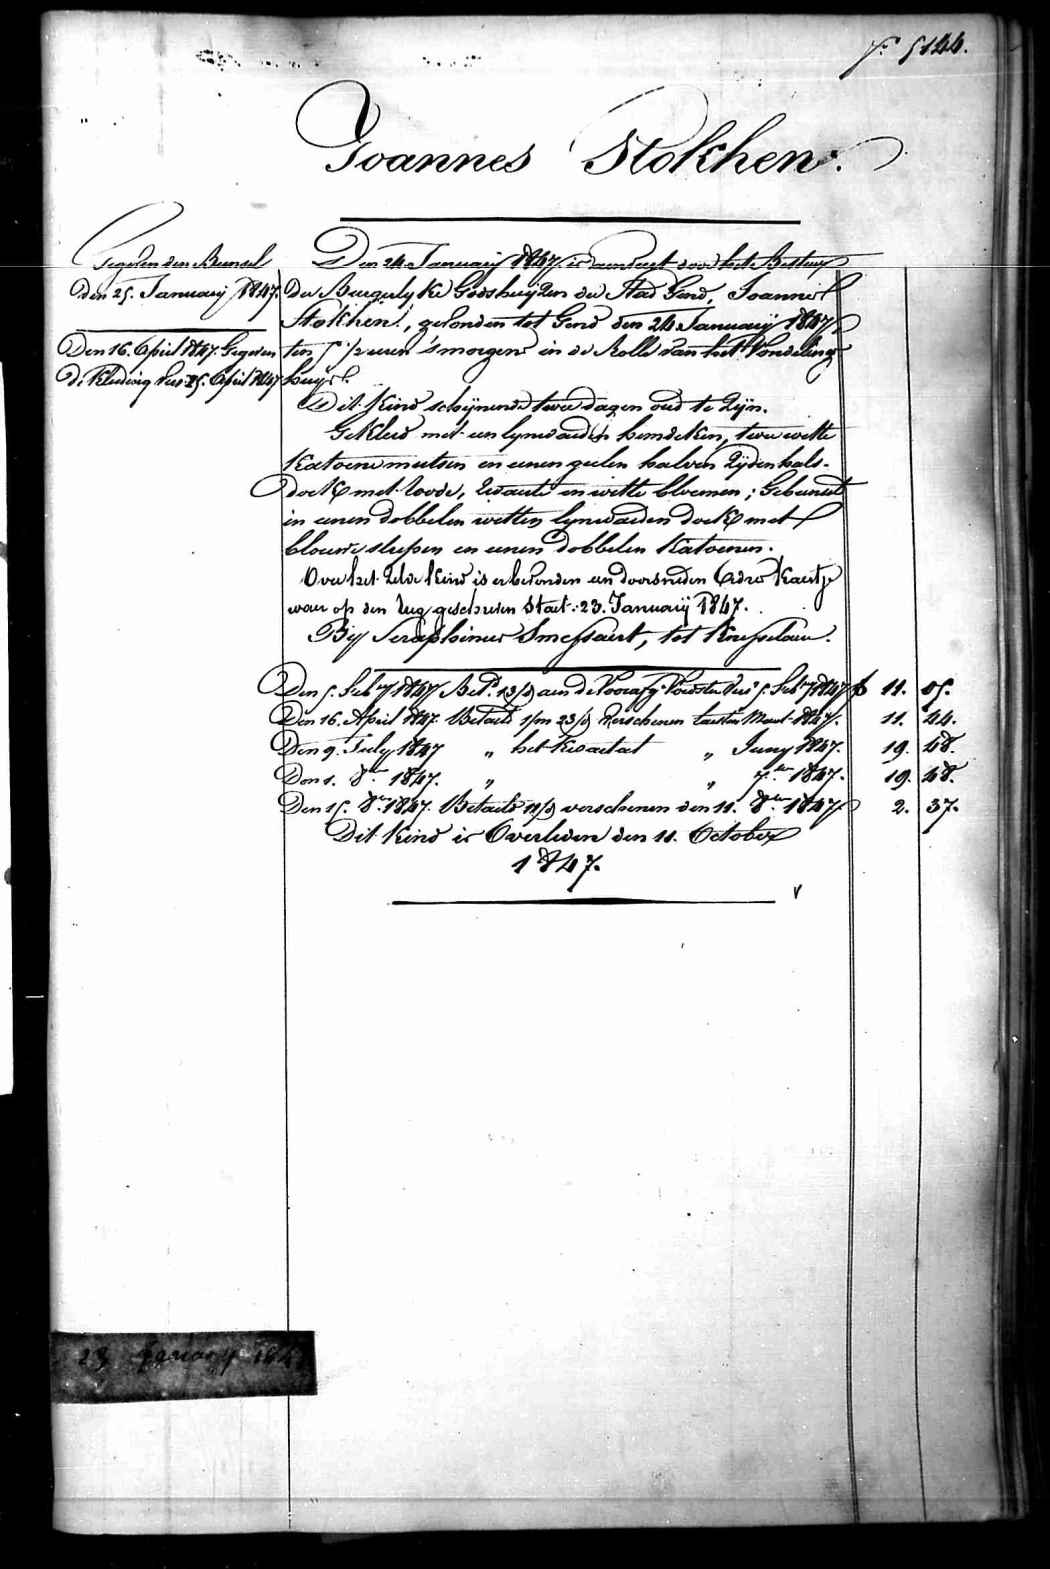 f.º 5144.
Joannes Stokhen.
Gegeven den Bunsel
den 25. January 1847.
Den 16. April 1847. Gegeven
de Kleding van 25. April 1847
Den 24 January 1847. is aenveert door het Bestuer
der Burgelyke Godshuyzen der Stad Gend, Joannes
Stokhen, gevonden tot Gend den 24 January 1847
ten 5 ½ uren 's morgens in de Rolle van het Vondeling-
huys.
Dit Kind schynende twee dagen oud te zyn.
Gekleed met een lynwaeden hemdeken, twee witte
Katoene mutsen en eenen geelen halven Zyden hals-
doek met roode, zwarte en witte bloemen; Gebunselt
in eenen dobbelen witten lynwaeden doek met
blouwe streepen en eenen dobbelen Katoenen.
Over het zelve Kind is er bevonden een doorsneden Cedro Kaertje
waer op den rug geschreven Staet: 23. January 1847.
By Seraphinus Smessaert, tot Knesselaere.
Den 5. Feb.ry 1847 Bet.d 13/d aen de Voorafg. Voedster Vers. 5. Feb.ry 1847 f 11. 05.
Den 16. April 1847. Betaeld 1/m 23/d Verschenen laesten Maert 1847. 11. 44.
Den 9. July 1847 " het Kwartael " Juny 1847. 19. 48.
Den 1. 8.ber 1847. " " 7.ber 1847. 19. 48.
Den 15. 8.ber 1847. Betaeld 11/d verschenen den 11. 8.ber 1847 2. 37.
Dit Kind is Overleden den 11. October
1847.
23 January 1847